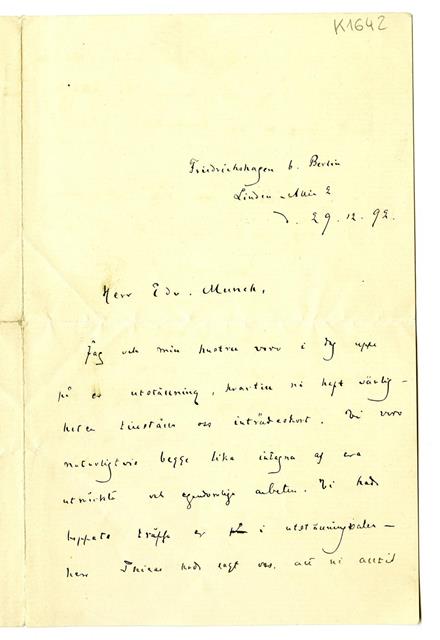 K1642
Friedrichshagen b. Berlin
Linden-Allée 2
d. 29.12.92.
Herr Edv. Munch,
Jag och min hustru voro i dag uppe
på er utställning, hvartill ni haft vänlig-
heten tillställa oss inträdeskort. Vi voro
naturligtvis begge lika intagna af era
utsökta och egendomliga arbeten. Vi hade
hoppats träffa er i utställningssalen –
herr hade sagt oss, att ni alltid